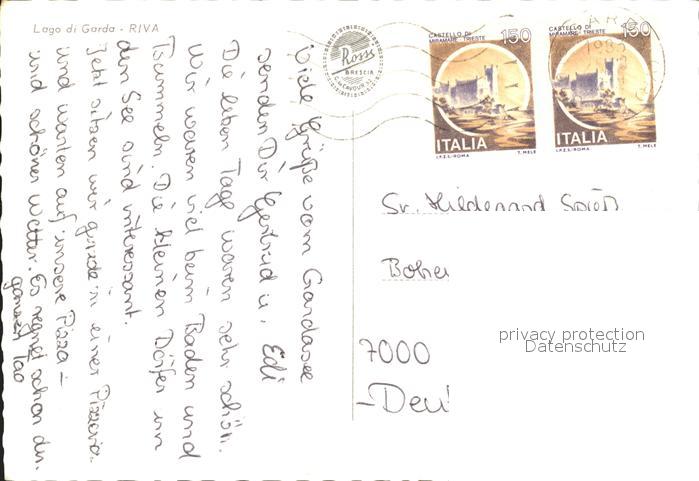 Lago di Garda - RIVA
Rossi
BRESCIA
CASTELLO DI
MIRAMARE-TRIESTE
150
ITALIA
I.P.Z.S.-ROMA T. MELE
CASTELLO DI
MIRAMARE-TRIESTE
150
ITALIA
I.P.Z.S.-ROMA T. MELE
Viele Grüße vom Gardasee
senden Dir Gertrud u. Edi
Die lieben Tage waren sehr schön.
Wir waren viel beim Baden und
Bummeln. Die kleinen Dörfer um
den See sind interessant.
Jetzt sitzen wir gerade in einer Pizzeria
und warten auf unsere Pizza –
und schöner Wetter. Es regnet schon den
ganzen Tag
Fr. Hildegard
7000
privacy protection
Datenschutz